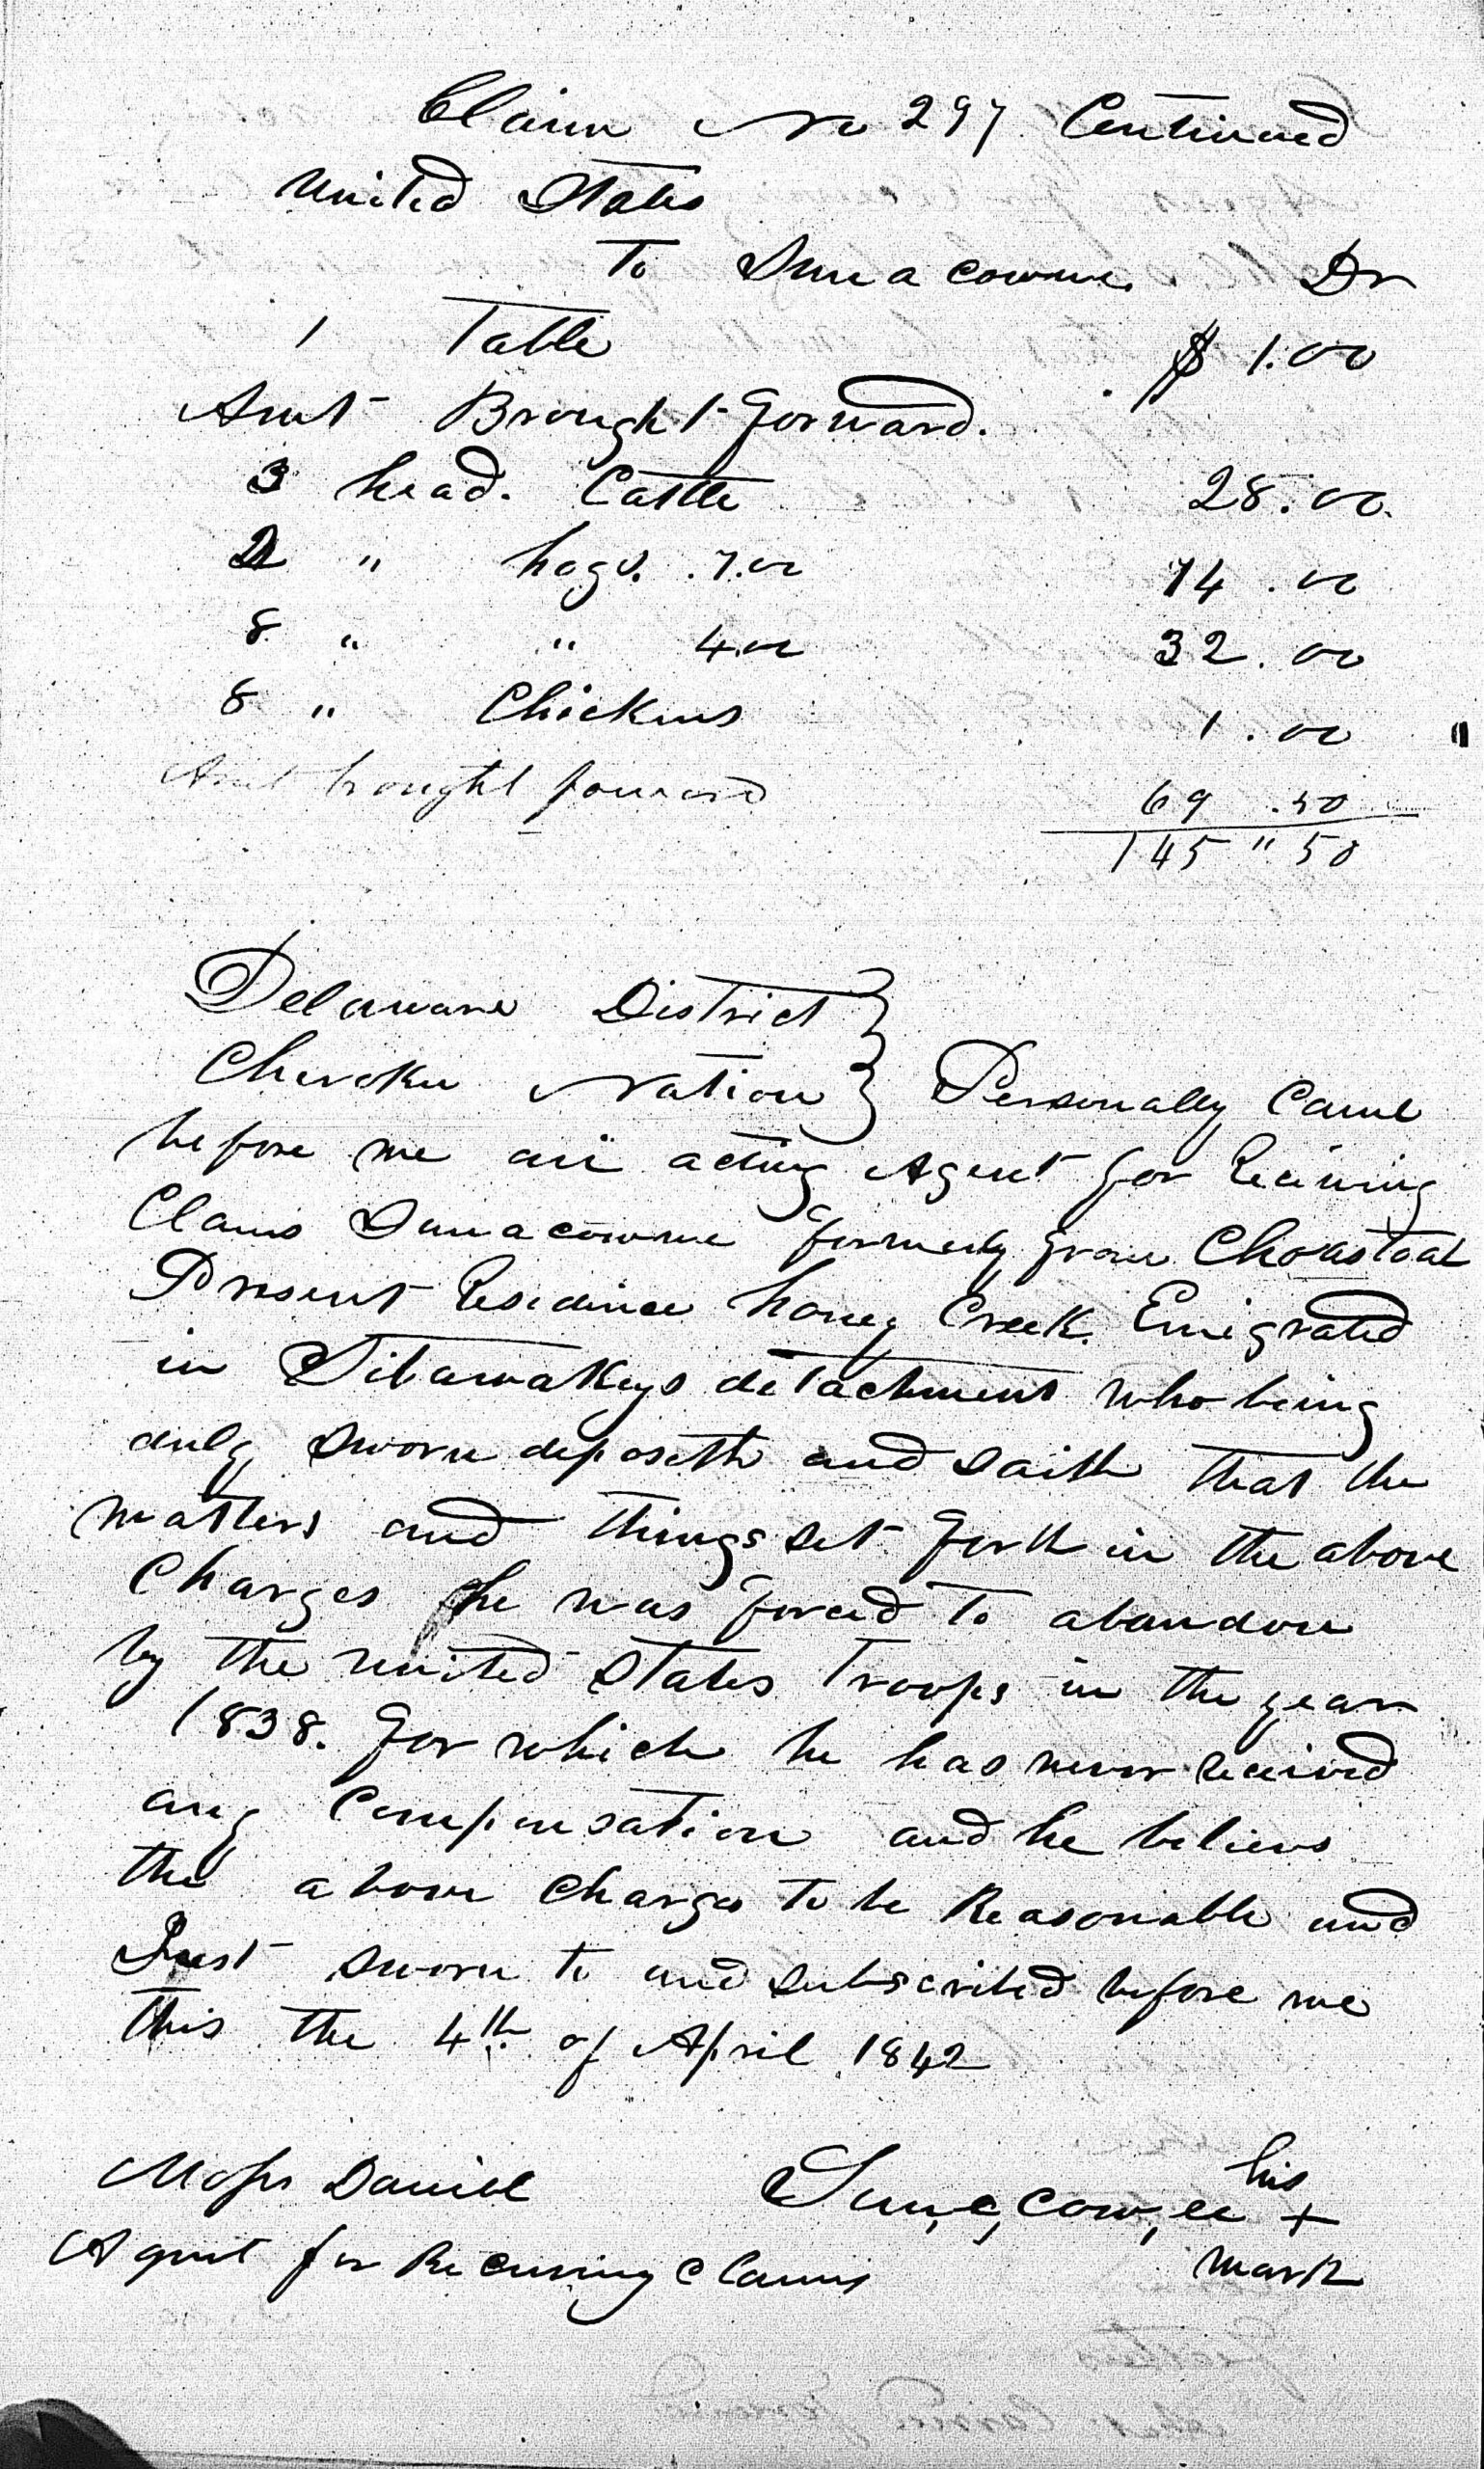 Claim No 297 Continued
United States
To Sunacowwe. Dr
1 Table $ 1.00
Amt Brought forward.
3 head. Cattle 28.00.
2 " hogs. 7.00 14.00
8 " " 4.00 32.00
8 " Chickens 1.00
Amt brought forward 69.50
145 " 50
Delaware District }
Cherokee Nation } Personally Came
before me an acting Agent for Receiving
Claims formerly from
Present Residence honey Creek. Emigrated
in detachment who being
duly sworn deposeth and saith that the
matters and things set forth in the above
Charges he was forced to abandon
by the united States Troops in the year
1838. for which he has never received
any Compensation and he believes
the above charges to be Reasonable and
Just sworn to and subscribed before me
this the 4th of April 1842
his
Moses Daniel +
Agent for Receiving Claims mark